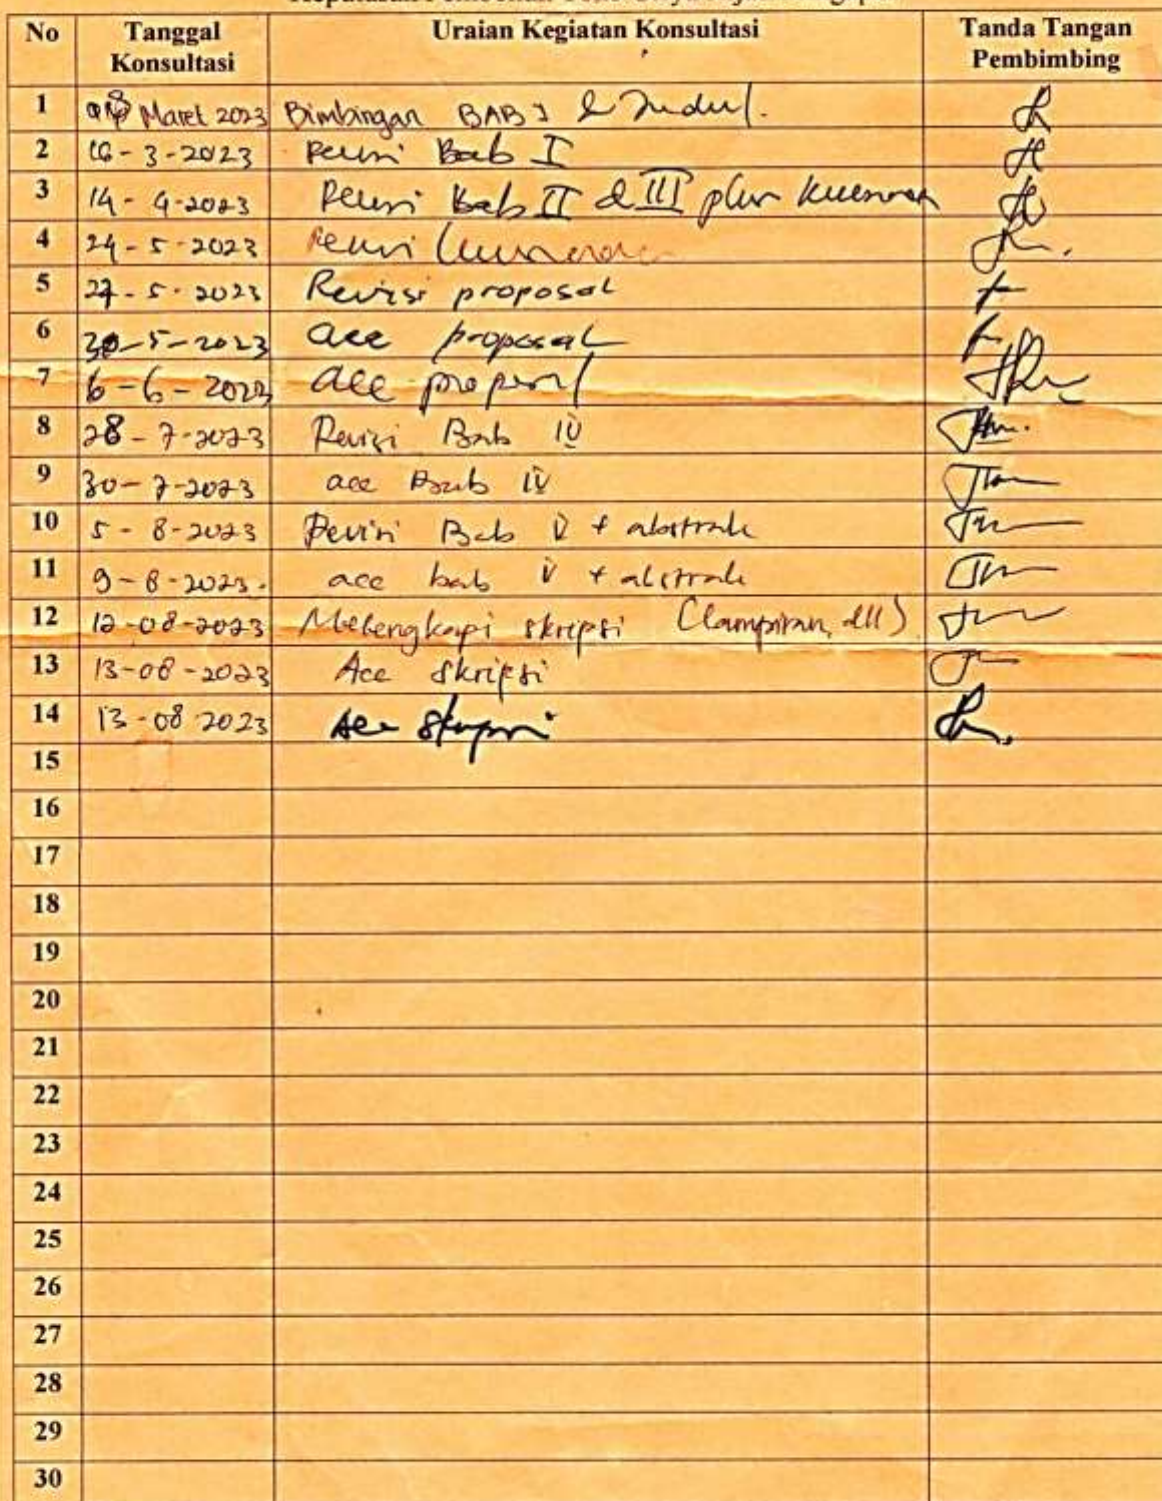 No Tanggal Konsultasi Uraian Kegiatan Konsultasi Tanda Tangan Pembimbing
1 Maret 2023 Bimbingan BAB I & Judul.
2 16-3-2023 Revisi Bab I
3 14-4-2023 Revisi Bab II & III plus
4 24-5-2023 Revisi
5 27-5-2023 Revisi proposal
6 30-5-2023 acc proposal
7 6-6-2023 acc proposal
8 28-7-2023 Revisi Bab IV
9 30-7-2023 acc Bab IV
10 5-8-2023 Revisi Bab V + abstrak
11 9-8-2023. acc bab V + abstrak
12 12-08-2023 Melengkapi skripsi (Lampiran, dll)
13 13-08-2023 Acc skripsi
14 13-08 2023 Acc skripsi
15
16
17
18
19
20
21
22
23
24
25
26
27
28
29
30